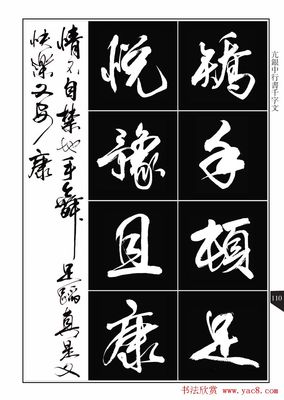 亢銀中行書千字文
矯手頓足
悦豫且康
情不自禁地手舞足蹈真是又
快樂又安康
110
书法欣赏
www.yac8.com